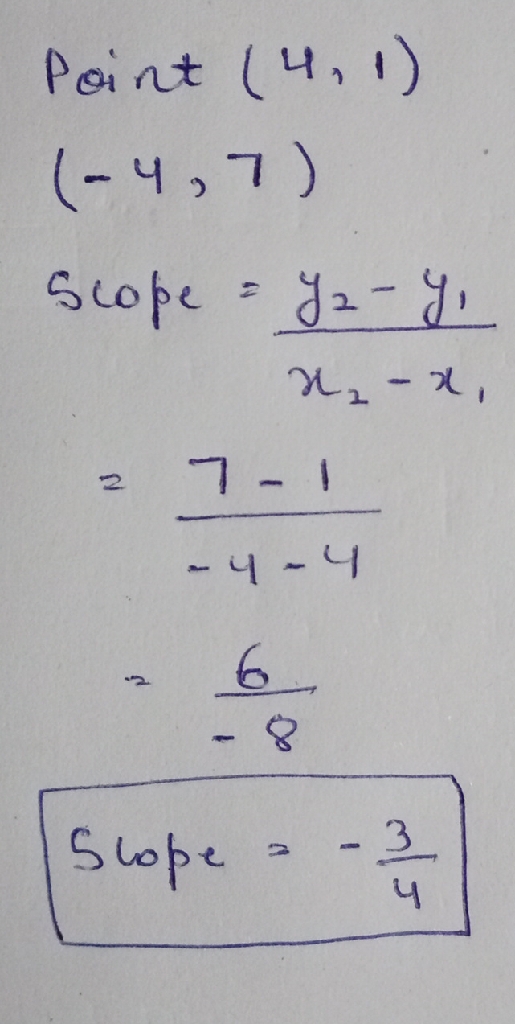 Point (4, 1)
(-4, 7)
Slope = y₂ - y₁
x₂ - x₁
= 7 - 1
-4 - 4
= 6
-8
Slope = - 3
4